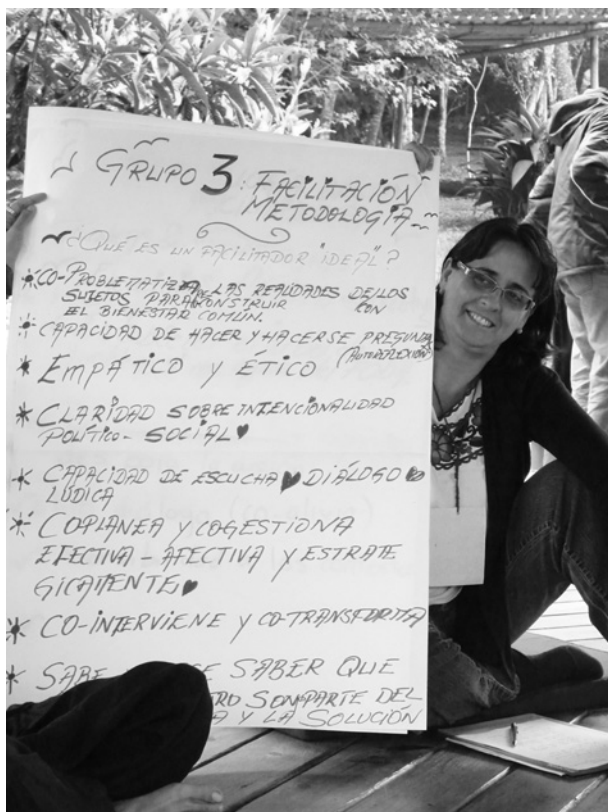 GRUPO 3: FACILITACIÓN
METODOLOGÍA
¿QUÉ ES UN FACILITADOR "IDEAL"?
CO-PROBLEMATIZA LAS REALIDADES DE/LOS
SUJETOS PARA CONSTRUIR CON
EL BIENESTAR COMÚN.
CAPACIDAD DE HACER Y HACERSE PREGUNTAS
(AUTOREFLEXIÓN)
EMPÁTICO Y ÉTICO
CLARIDAD SOBRE INTENCIONALIDAD
POLÍTICO-SOCIAL
CAPACIDAD DE ESCUCHA DIÁLOGO
LÚDICA
COPLANEA Y COGESTIONA
EFECTIVA-AFECTIVA Y ESTRATE
GICAMENTE
CO-INTERVIENE Y CO-TRANSFORMA
SABE SABER QUE
SON PARTE DEL
Y LA SOLUCIÓN